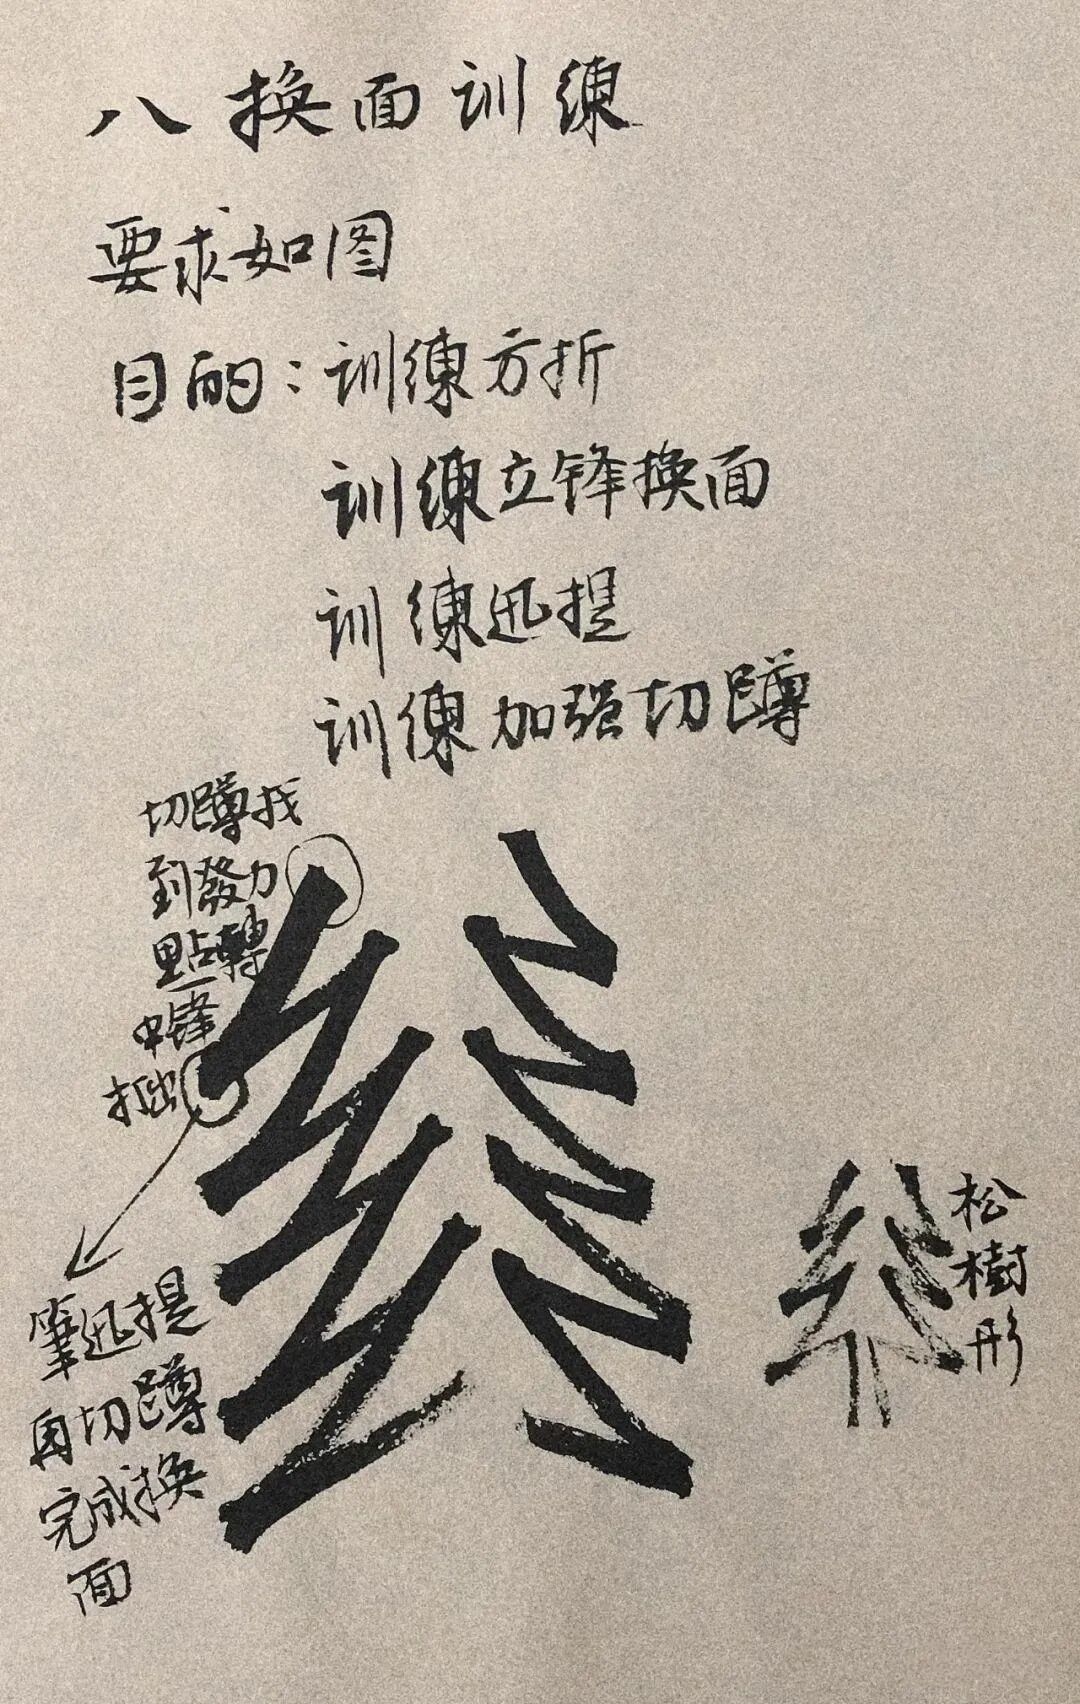 八换面训练
要求如图
目的：训练方折
训练立锋换面
训练迅提
训练加强切蹲
切蹲找
到發力
點轉
中锋
拙出
筆迅提
再切蹲
完成换
面
松樹形